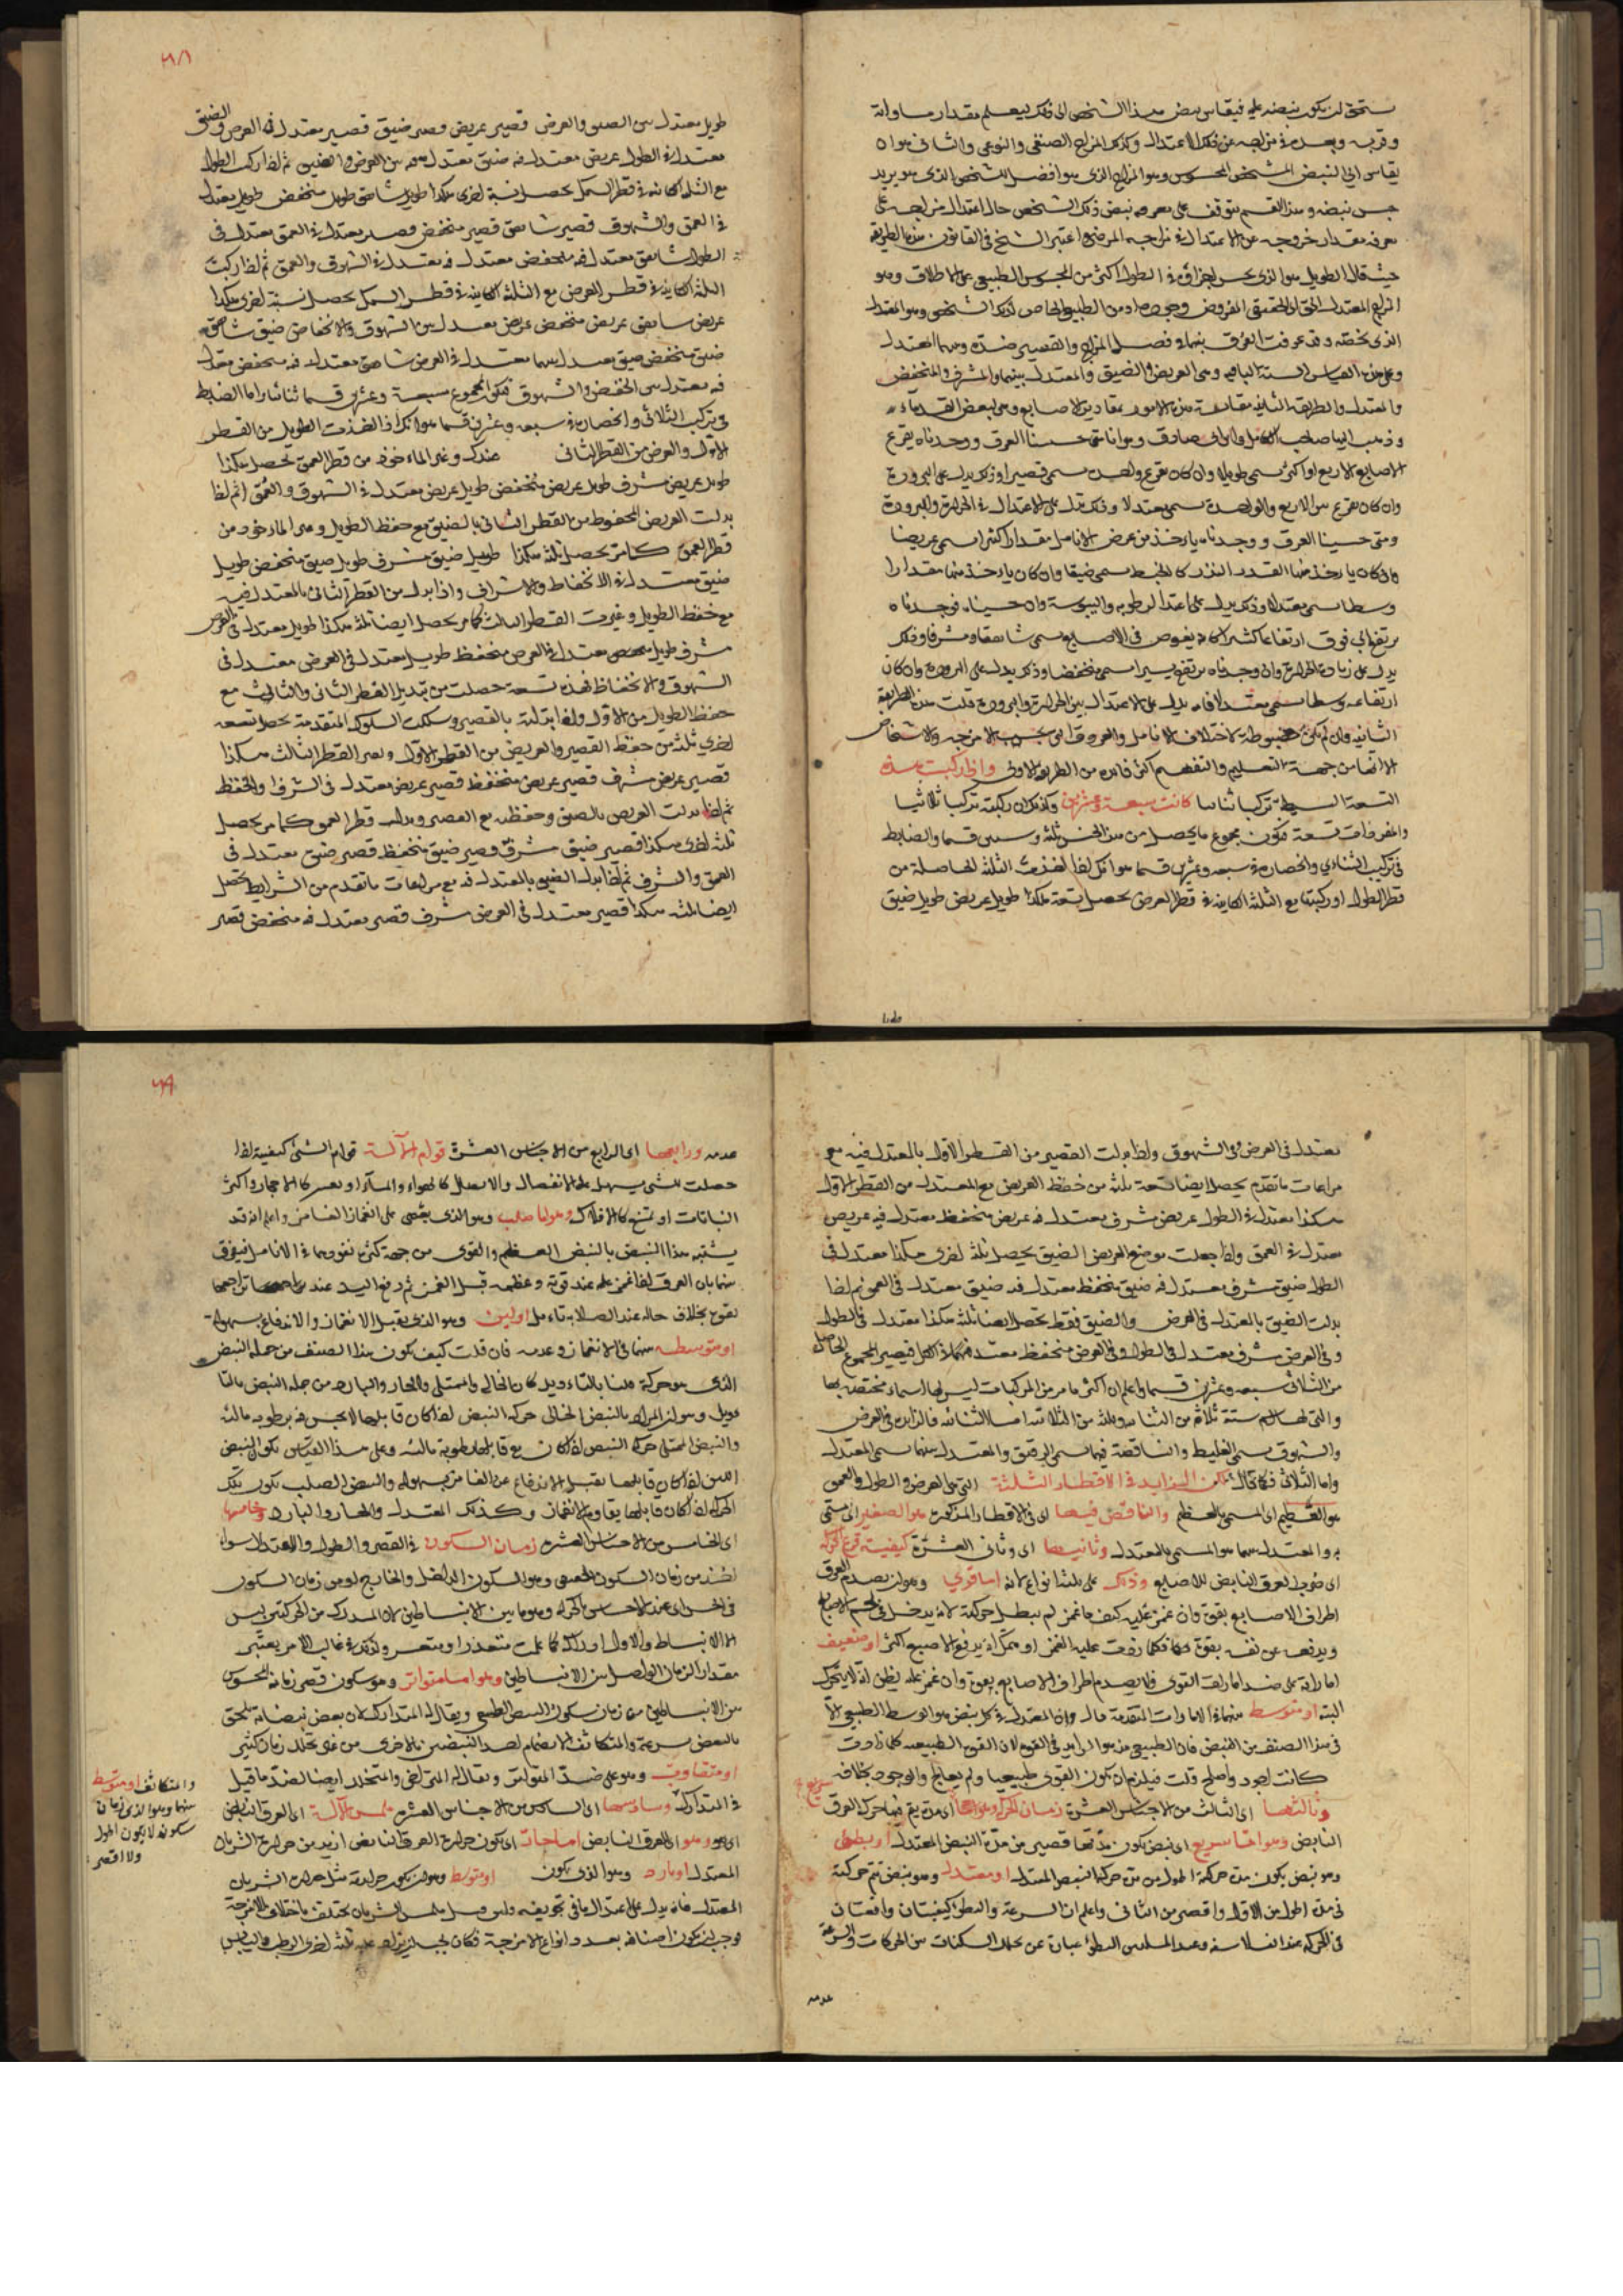 يستحق ان يكون نبضه عليه فيقاس نبض هذا الشخص الى ذلك ليعلم مقدار مساواته
وقربه وبعده في مزاجه عن ذلك الاعتدال وكذلك المزاج الصنفي والنوعي والثاني هو ان
يقاس الى النبض الشخص المحسوس وهو المزاج الذي هو افضل للشخص الذي هو يريد
جس نبضه وهذا القسم يتوقف على معرفة نبض ذلك الشخص حال اعتدال مزاجه على
معرفة مقدار خروجه عن الاعتدال في مزاجه المرضي واعتبر الشيخ في القانون هذه الطريقة
حيث قال الطويل هو الذي يحس اجزاؤه في الطول اكثر من المحسوس الطبيعي على الاطلاق وهو
المزاج المعتدل الحق الحقيقي المفروض وجوده او من الطبيعي الخاص لذلك الشخص وهو المعتدل
الذي يخصه وقد عرفت الفرق بينهما في فصل المزاج والقصير ضده وبينهما المعتدل
وعلى هذا القياس الستة الباقية وهي العريض والضيق والمعتدل بينهما والمشرف والمنخفض
والمعتدل والطريقة الثانية مقايسة هذه الامور بمقادير الاصابع وهي لبعض القدماء
وذهب اليها صاحب الكامل وابن ابي صادق وهو انا متى حسسنا العرق ووجدناه يقرع
الاصابع الاربع او اكثر سمي طويلا وان كان يقرع واحدة سمي قصيرا وذلك يدل على البرودة
وان كان يقرع بين الاربع والواحدة سمي معتدلا وذلك يدل على الاعتدال في الحرارة والبرودة
ومتى حسسنا العرق ووجدناه ياخذ من عرض الانامل مقدارا كثيرا سمي عريضا
وان كان ياخذ منها القدر النزر كالخيط سمي ضيقا وان كان ياخذ منها مقدارا
وسطا سمي معتدلا وذلك يدل على اعتدال الرطوبة واليبوسة وان حسسناه فوجدناه
يرتفع الى فوق ارتفاعا كثيرا كانه يغوص في الاصابع سمي شاهقا ومشرفا وذلك
يدل على زيادة الحرارة وان وجدناه يرتفع يسيرا سمي منخفضا وذلك يدل على البرودة وان كان
ارتفاعه وسطا سمي معتدلا فانه يدل على الاعتدال بين الحرارة والبرودة قلت هذه الطريقة
الثانية وان لم تكن مضبوطة لاختلاف الانامل والعروق بحسب الامزجة والاشخاص
الا انها من جهة التعليم والتفهيم اكثر فائدة من الطريقة الاولى واذا ركبت هذه
التسعة البسيطة تركيبا ثنائيا كانت سبعة وعشرين وكذلك ان ركبته تركيبا ثلاثيا
والمفردات تسعة فتكون مجموع ما يحصل من هذا الجنس ثلثة وستين قسما والضابط
في تركيب الثنائي وانحصاره في سبعة وعشرين قسما هو انك اذا اخذت الثلثة الحاصلة من
قطر الطول وركبتها مع الثلثة الكاينة في قطر العرض يحصل تسعة هكذا طويل عريض طويل ضيق
طويل معتدل بين الضيق والعرض قصير عريض قصير ضيق قصير معتدل في العرض والضيق
معتدل في الطول عريض معتدل فيه ضيق معتدل فيه بين العرض والضيق ثم اذا ركبت الطول
مع الثلثة الكائنة في قطر السمك يحصل تسعة اخرى هكذا طويل شاهق طويل منخفض طويل معتدل
في العمق والشهوق قصير شاهق قصير منخفض قصير معتدل في العمق معتدل في
الطول شاهق معتدل فيه منخفض معتدل فيه معتدل في الشهوق والعمق ثم اذا ركبت
الثلثة الكاينة في قطر العرض مع الثلثة الكاينة في قطر السمك يحصل تسعة اخرى هكذا
عريض شاهق عريض منخفض عريض معتدل بين الشهوق والانخفاض ضيق شاهق
ضيق منخفض ضيق معتدل بينهما معتدل في العرض شاهق معتدل فيه منخفض معتدل
فيه معتدل بين الخفض والشهوق فيكون المجموع سبعة وعشرين قسما ثنائيا واما الضابط
في تركيب الثلاثي وانحصاره في سبعة وعشرين قسما هو انك اذا اخذت الطويل من القطر
الاول والعريض من القطر الثاني عندك وغير الماخوذ من قطر العمق تحصل هكذا
طويل عريض مشرف طويل عريض منخفض طويل عريض معتدل في الشهوق والعمق ثم اذا
بدلت العريض المحفوظ من القطر الثاني بالضيق مع حفظ الطويل وغير الماخوذ من
قطر العمق كما مر يحصل ثلثة هكذا طويل ضيق مشرف طويل ضيق منخفض طويل
ضيق معتدل في الانخفاض والاشراف واذا بدل من القطر الثاني بالمعتدل فيه
مع حفظ الطويل وغيرت القطر الثالث كما مر يحصل ايضا ثلثة هكذا طويل معتدل في العرض
مشرف طويل معتدل في العرض منخفض طويل معتدل في العرض معتدل في
الشهوق والانخفاظ فهذه تسعة حصلت من تبديل القطر الثاني والثالث مع
حفظ الطويل من الاول واذا بدلته بالقصير وسلكت السلوك المتقدمة يحصل تسعة
اخرى ثلثة من حفظ القصير والعريض من القطر الاول وتغير القطر الثالث هكذا
قصير عريض مشرف قصير عريض منخفظ قصير عريض معتدل في الشرف والخفظ
ثم اذا بدلت العريض بالضيق وحفظته مع القصير وبدلت قطر العمق كما مر يحصل
ثلثة اخرى هكذا قصير ضيق مشرف قصير ضيق منخفظ قصير ضيق معتدل في
العمق والشرف ثم اذا بدل الضيق بالمعتدل فيه مع مراعات ما تقدم من الشرايط يحصل
ايضا ثلثة هكذا قصير معتدل في العرض مشرف قصير معتدل فيه منخفض قصير
معتدل في العرض وفي الشهوق واذا بدلت القصير من القطر الاول بالمعتدل فيه مع
مراعات ما تقدم يحصل ايضا تسعة ثلثة من حفظ العريض مع المعتدل من القطر الاول
هكذا معتدل في الطول عريض مشرف معتدل فيه عريض منخفظ معتدل فيه عريض
معتدل في العمق واذا جعلت موضع العريض الضيق يحصل ثلثة اخرى هكذا معتدل في
الطول ضيق مشرف معتدل فيه ضيق منخفظ معتدل فيه ضيق معتدل في العمق ثم اذا
بدلت الضيق بالمعتدل في العرض والضيق فقط يحصل ايضا ثلثة هكذا معتدل في الطول
وفي العرض مشرف معتدل في الطول وفي العرض منخفظ معتدل في الكل فيصير المجموع الحاصل
من الثلاثي سبعة وعشرين قسما واعلم ان اكثر ما مر من المركبات ليس لها اسماء مختصة بها
والتي لها اسم ستة ثلاثة من الثنائية وثلثة من الثلاثية اما الثنائية فالزايد في العرض
والشهوق يسمى الغليظ والناقصة فيهما يسمى الدقيق والمعتدل بينهما يسمى المعتدل
واما الثلاثي فكما قال لكن الزايد في الاقطار الثلثة التي هي العرض والطول والعمق
هو العظيم اي المسمى بالعظيم والناقص فيها اي في الاقطار المذكورة هو الصغير اي يسمى
به والمعتدل بينهما هو المسمى بالمعتدل وثانيها اي وثاني العشرة كيفية قرع الحركة
اي ضرب العرق النابض للاصابع وذلك على ثلثة انواع لانه اما قوي وهو ان يصدم العرق
اطراف الاصابع بقوة وان غمز عليه كيف ما غمز لم يبطل حركته لانه يدخل في لحم الاصابع
ويدفعه عن نفسه بقوة فكلما زدت عليه الغمز او مكثرا يدفع الاصبع اكثر او ضعيف
امارته على ضد امارات القوي فلا يصدم اطراف الاصابع بقوة وان غمز عليه يظن انه لا يتحرك
البتة او متوسط بينهما في الامارات المتقدمة قال وان المعتدل في كل نبض هو الوسط الطبيعي الا
في هذا الصنف من النبض فان الطبيعي منه هو الزايد في القوة لان القوة الطبيعية كلما زادت
كانت اجود واصلح قلت فيلزم ان يكون القوي طبيعيا ولم يعالج والوجود بخلافه
وثالثها اي الثالث من الاجناس العشرة زمان الحركة وهو اي مدة يتم فيها حركة العرق
النابض وهو اما سريع اي نبض يكون مدتها قصير من مدة النبض المعتدل او بطيئ
وهو نبض يكون مدة حركته اطول من مدة حركة النبض المعتدل او معتدل وهو نبض يتم حركته
في مدة اطول من الاول واقصر من الثاني واعلم ان السرعة والبطؤ كيفيتان واقعتان
في الحركة عند الفلاسفة وعند المتكلمين البطؤ عبارة عن تخلل السكنات بين الحركات والسرعة
عدمه
عدمه ورابعها اي الرابع من الاجناس العشرة قوام الآلة قوام الشئ كيفية اذا
حصلت لشئ يسهل عليه الانفصال والاتصال كالهواء والماء او يعسر كالاحجار واكثر
النباتات او يمتنع كالافلاك وهو اما صلب وهو الذي يتعصى على انغماز الغامز واعلم انه قد
يشتبه هذا النبض بالنبض العظيم والقوي من جهة كثرة نفوذهما في الانامل فيفرق
بينهما بان العرق اذا غمز عليه عند قوته وعظمه قبل الغمز ثم رفع اليد عند تراجعها
بقوة بخلاف حاله عند الصلابة تامل او لين وهو الذي يقبل الانغماز والاندفاع بسهولة
او متوسط بينهما في الانغماز وعدمه فان قلت كيف يكون هذا الصنف من جملة النبض
الذي هو حركة قلنا بالتاويل كان الخالي والممتلي والحار والبارد من جملة النبض بالتا
ويل وهو ان المراد بالنبض الخالي حركة النبض اذا كان قابلها لا يحس فيه برطوبة مالئة
والنبض الممتلئ حركة النبض اذا كان مع قابلها رطوبة مالئة وعلى هذا القياس يكون النبض
اللين اذا كان قابلها يقبل الاندفاع عن الغامز بسهولة والنبض الصلب يكون تلك
الحركة اذا كان قابلها يقاوم الانغماز وكذلك المعتدل والحار والبارد وخامسها
اي الخامس من الاجناس العشرة زمان السكون في القصر والطول والاعتدال سواء
اخذ من زمان السكون الحسي وهو السكون الداخل والخارج او من زمان السكون
في الحس اي عند الاحساس بالحركة وهو ما بين الانبساطين لان المدرك من الحركتين ليس
الا الانبساط والاول ادراكه كما علمت متعذر او متعسر ولذلك في غالب الامر يعتبر
مقدار الزمان الواصل بين الانبساطين وهو اما متواتر وهو سكون قصر زمانه المحسوس
بين الانبساطين من زمان سكون النبض الطبيعي ويقال له المتدارك لان بعض نبضاته يلحق
بالبعض بسرعة والمتكاثف لانضمام احد النبضتين بالاخرى من غير تخلل زمان كثير
او متفاوت وهو على ضد المتواتر ويقال له المتراخي والمتخلخل ايضا لضد ما قيل
في المتدارك وسادسها اي السادس من الاجناس العشرة ملمس الآلة اي العرق النابض
وهو اي العرق النابض اما حار اي يكون حرارة العرق النابض ازيد من حرارة الشريان
المعتدل او بارد وهو الذي يكون او متوسط وهو ان يكون حرارته مثل حرارة الشريان
المعتدل فانه يدل على اعتدال ما في تجويفه وليس قيل ملمس الشريان يختلف باختلاف الامزجة
فوجب ان يكون اصنافه بعدد انواع الامزجة فكان يجب ان يزاد عليه ثلثة اخرى الرطب واليابس
والمتكاثف او متوسط
بينهما وهو الذي زمان
سكونه لا يكون اطول
ولا اقصر